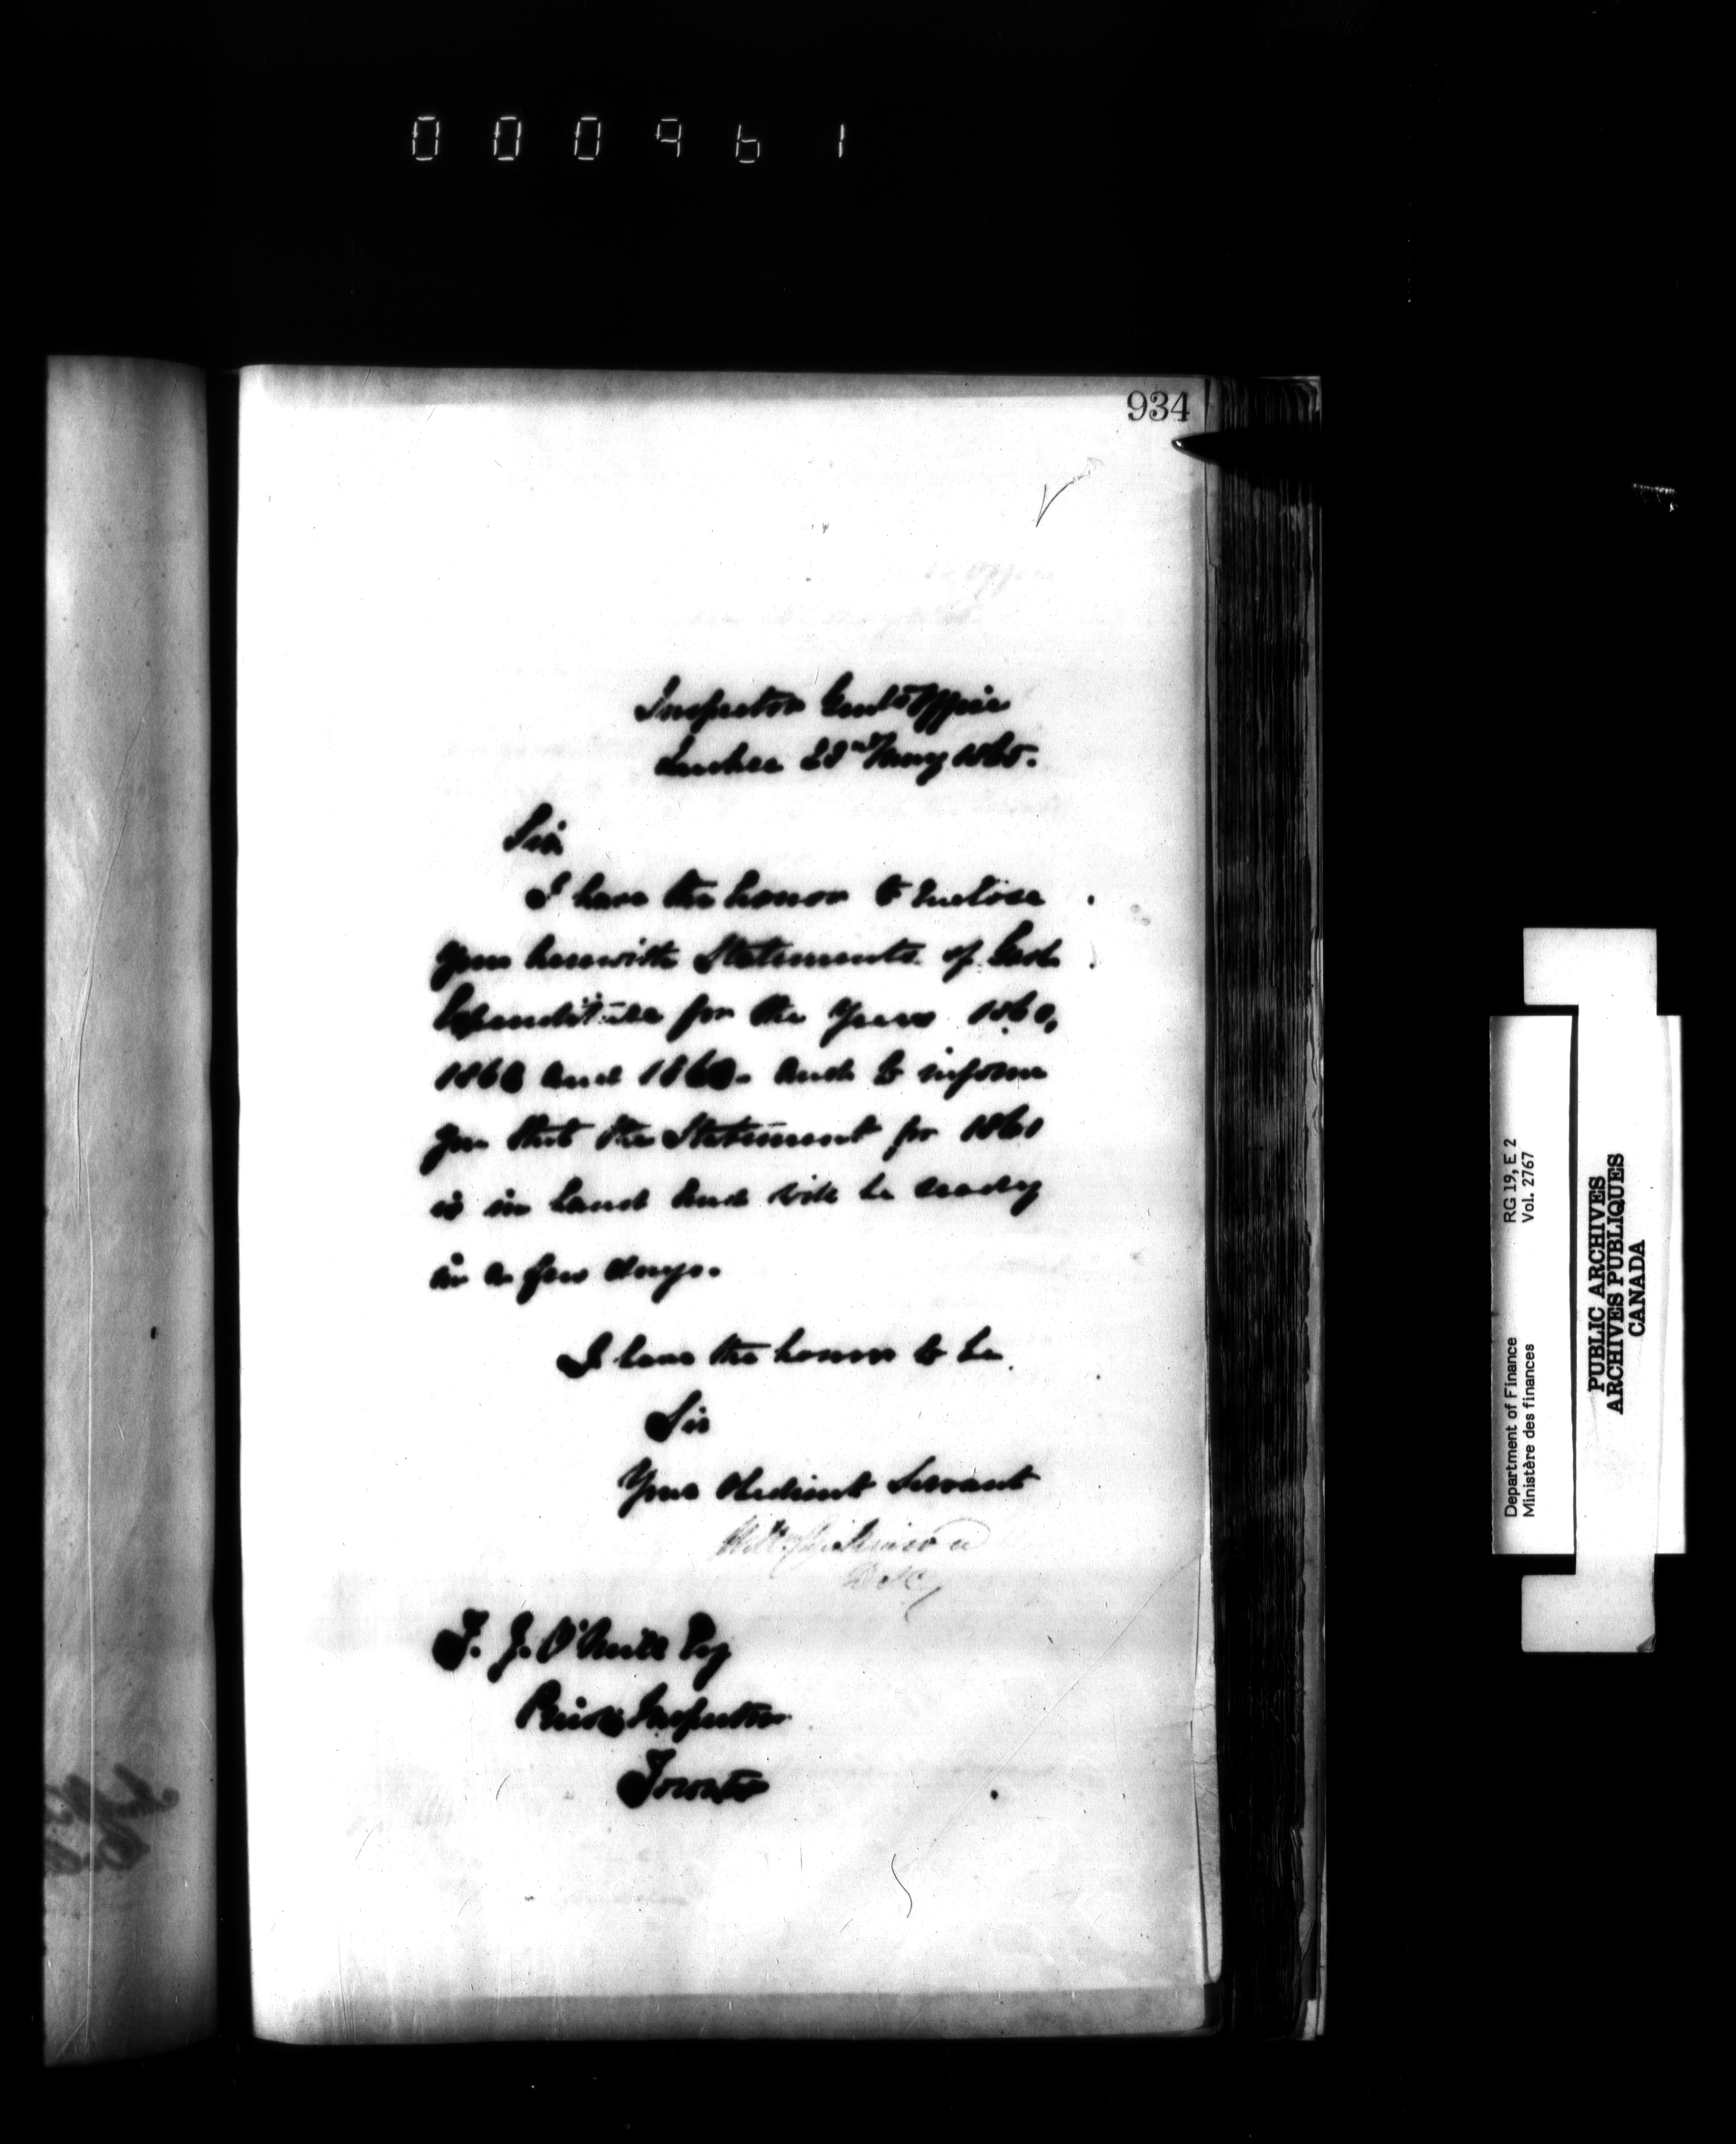 000961
934
Inspector Genl's Office
Quebec 23rd Jany 1865.
Sir
I have the honor to enclose
you herewith Statements of
Expenditure for the Years 1860,
and to inform
you that the Statement for 1861
is in hand and will be ready
in a few days.
I have the honor to be
Sir
Your Obedient Servant
F. J. O'Neill Esq
Prison Inspector
Toronto
Department of Finance RG 19, E 2
Ministère des finances Vol. 2767
PUBLIC ARCHIVES
ARCHIVES PUBLIQUES
CANADA